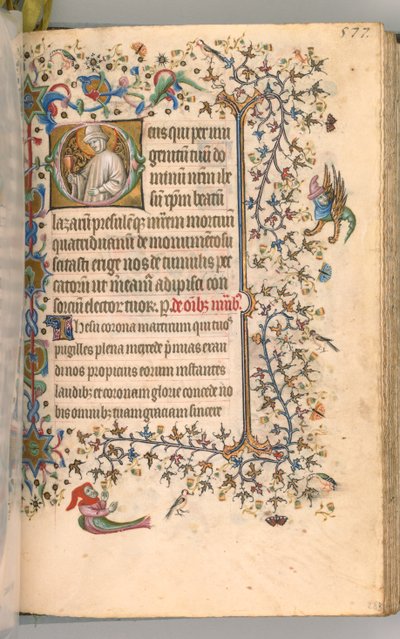 577.
Deus qui per uni
genitum tuum do
minum nrm ihe
sum xpm beatum
lazarum presulemqz mrem mortuum
quatriduanum de monumento su
scitasti erige nos de tumulis pec
catorum ut meam adipisci con
sorcium electorum tuor. p. de oibz mrib
Ihesu corona martirum qui tuos
pugilles plena mercede pmias exau
di nos propicius eorum instantes
laudibz et coronam glorie concede no
bis omnibz tuam graciam sincere